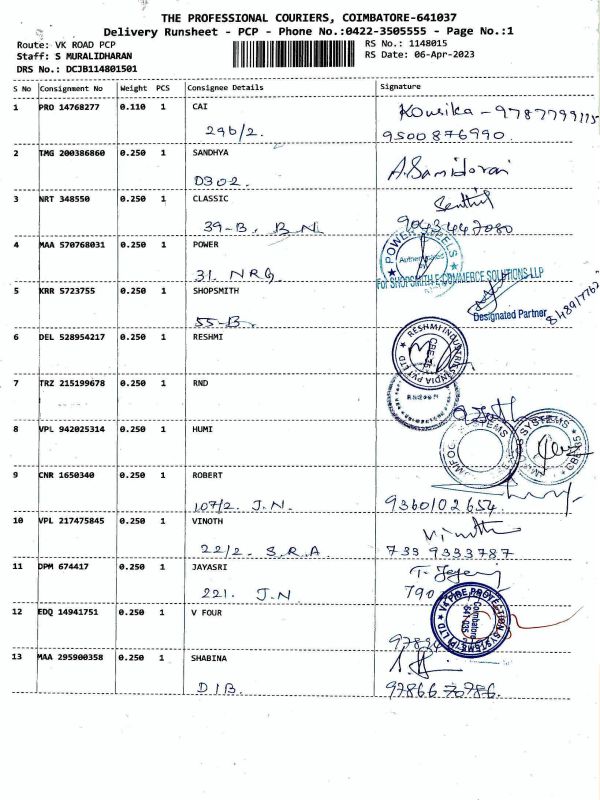 THE PROFESSIONAL COURIERS, COIMBATORE-641037
Delivery Runsheet - PCP - Phone No.:0422-3505555 - Page No.:1
Route: VK ROAD PCP
RS No.: 1148015
Staff: S MURALIDHARAN
RS Date: 06-Apr-2023
DRS No.: DCJB114801501
S No Consignment No Weight PCS Consignee Details Signature
1 PRO 14768277 0.110 1 CAI Kousika - 9787799115
296/2. 9500876990.
2 TMG 200386860 0.250 1 SANDHYA
D302.
3 NRT 348550 0.250 1 CLASSIC Senthil
39-B. B N 9043447080
4 MAA 570768031 0.250 1 POWER
31. NRG
For SHOPSMITH E-COMMERCE SOLUTIONS LLP
5 KRR 5723755 0.250 1 SHOPSMITH
55-B. Designated Partner
6 DEL 528954217 0.250 1 RESHMI RESHMI INDUSTRIES INDIA PVT LTD
7 TRZ 215199678 0.250 1 RND
8 VPL 942025314 0.250 1 HUMI
9 CNR 1650340 0.250 1 ROBERT
107/2. J.N. 9360102654
10 VPL 217475845 0.250 1 VINOTH Vinoth
22/2. S.R.A 733 9333787
11 DPM 674417 0.250 1 JAYASRI
221. J.N 790
12 EDQ 14941751 0.250 1 V FOUR
13 MAA 295900358 0.250 1 SHABINA
D1B. 97866 70786.